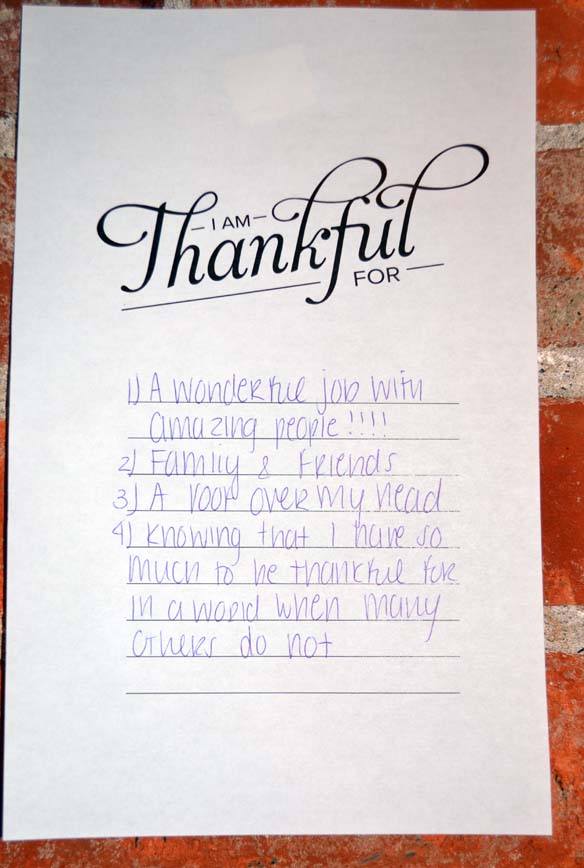 I AM
Thankful
FOR
1) A wonderful job with
amazing people!!!!
2) Family & Friends
3) A roof over my head
4) Knowing that I have so
much to be thankful for
in a world when many
others do not